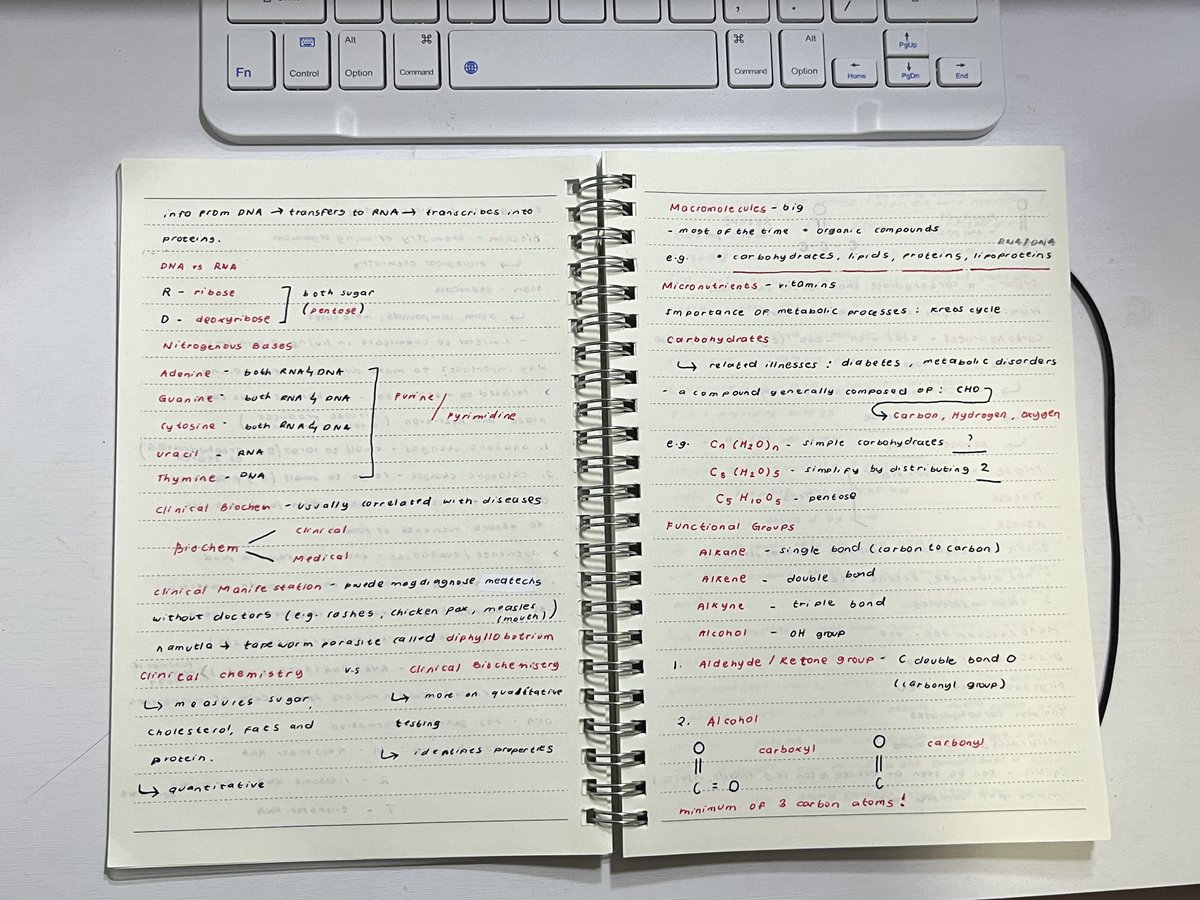 Fn
Control
Alt
Option
⌘
Command
⌘
Command
Alt
Option
←
Home
↑
PgUp
↓
PgDn
→
End
info from DNA → transfers to RNA → transcribes into
protein.
DNA vs RNA
R - ribose
D - deoxyribose
both sugar
(pentose)
Nitrogenous Bases
Adenine - both RNA & DNA
Guanine - both RNA & DNA
Cytosine - both RNA & DNA
Uracil - RNA
Thymine - DNA
purine /
pyrimidine
Clinical Biochem - usually correlated with diseases
Biochem
Clinical
Medical
Clinical Manifestation - pwede magdiagnose medtechs
without doctors (e.g. rashes, chicken pox, measles
(mouth))
namutla → tapeworm parasite called diphyllobotrium
Clinical chemistry vs Clinical Biochemistry
↳ measures sugar,
cholesterol, fats and
protein.
↳ quantitative
↳ more on qualitative
testing
↳ identifies properties
Macromolecules - big
- most of the time • organic compounds
RNA/DNA
e.g. • carbohydrates, lipids, proteins, lipoproteins
Micronutrients - vitamins
Importance of metabolic processes : Krebs cycle
Carbohydrates
↳ related illnesses : diabetes, metabolic disorders
- a compound generally composed of : CHO
Carbon, Hydrogen, Oxygen
e.g. Cn (H2O)n - simple carbohydrates ?
C5 (H2O)5 - simplify by distributing 2
C5 H10 O5 - pentose
Functional Groups
Alkane - single bond (carbon to carbon)
Alkene - double bond
Alkyne - triple bond
Alcohol - OH group
1. Aldehyde / Ketone group - C double bond O
(carbonyl group)
2. Alcohol
O
||
C = O
carboxyl
O
||
C
carbonyl
minimum of 3 carbon atoms!